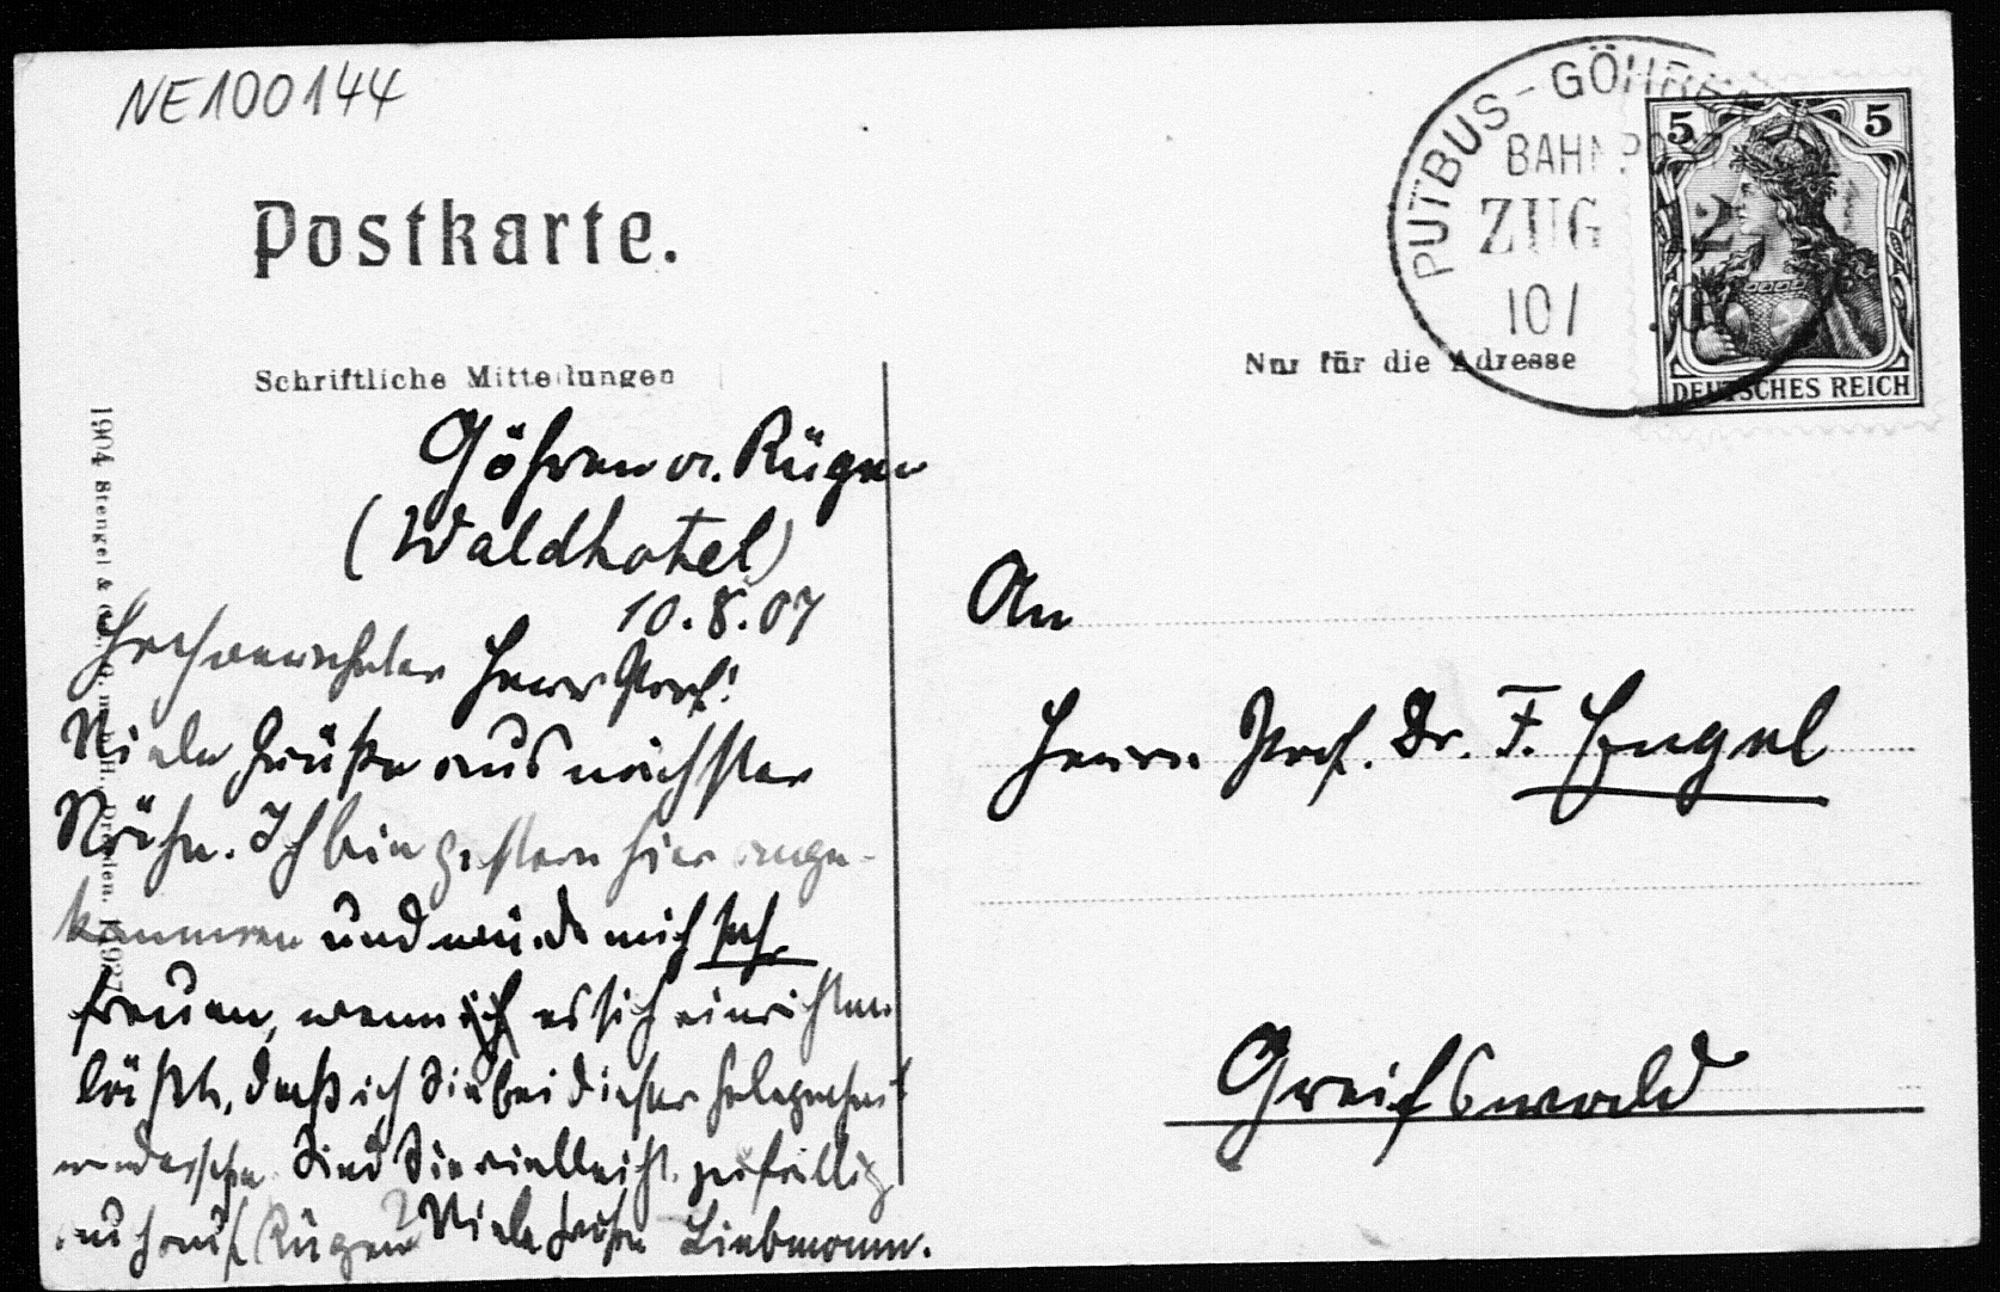 NE100144
PUTBUS-GÖHREN
BAHNPOST
ZUG
10/
5 5
DEUTSCHES REICH
Postkarte.
Schriftliche Mitteilungen
Nur für die Adresse
1904 Stengel & Co., G.m.b.H., Dresden.
Göhren a. Rügen
(Waldhotel)
10.8.07
Hochverehrter Herr Prof!
Viele Grüße aus nächster
Nähe. Ich bin gestern hier ange-
kommen und würde mich sehr
freuen, wenn ich es sich einrichten
läßt, daß ich Sie bei dieser Gelegenheit
wiedersehe. Sind Sie vielleicht zufällig
auch auf Rügen? Viele Grüße Liebmann.
An
Herrn Prof. Dr. F. Engel
Greifswald